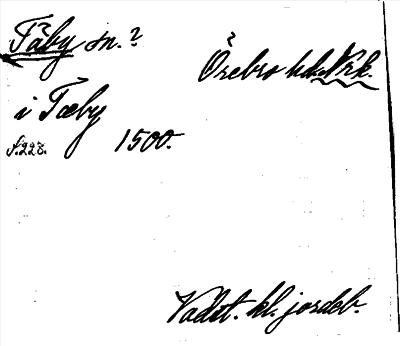 Täby sn.?
? Örebro hd. Nrk.
i Tæby
s. 227. 1500.
Vadst. kl. jordeb.